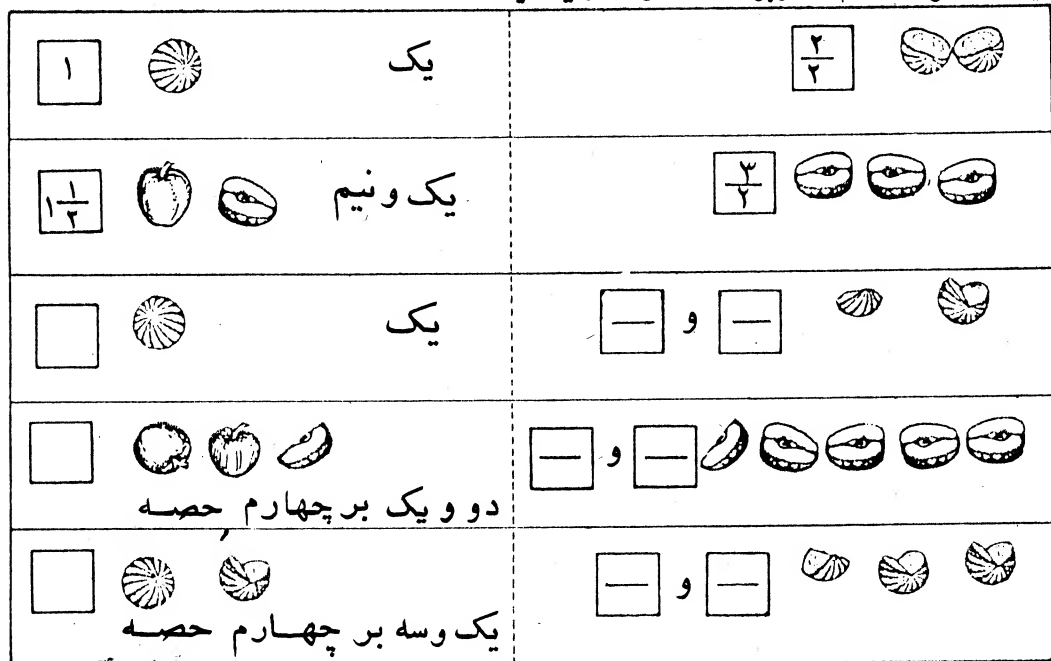 ۲/۲ یک ۱
۳/۲ یک و نیم ۱ ۱/۲
و یک
و
دو و یک بر چهارم حصه
و
یک و سه بر چهارم حصه